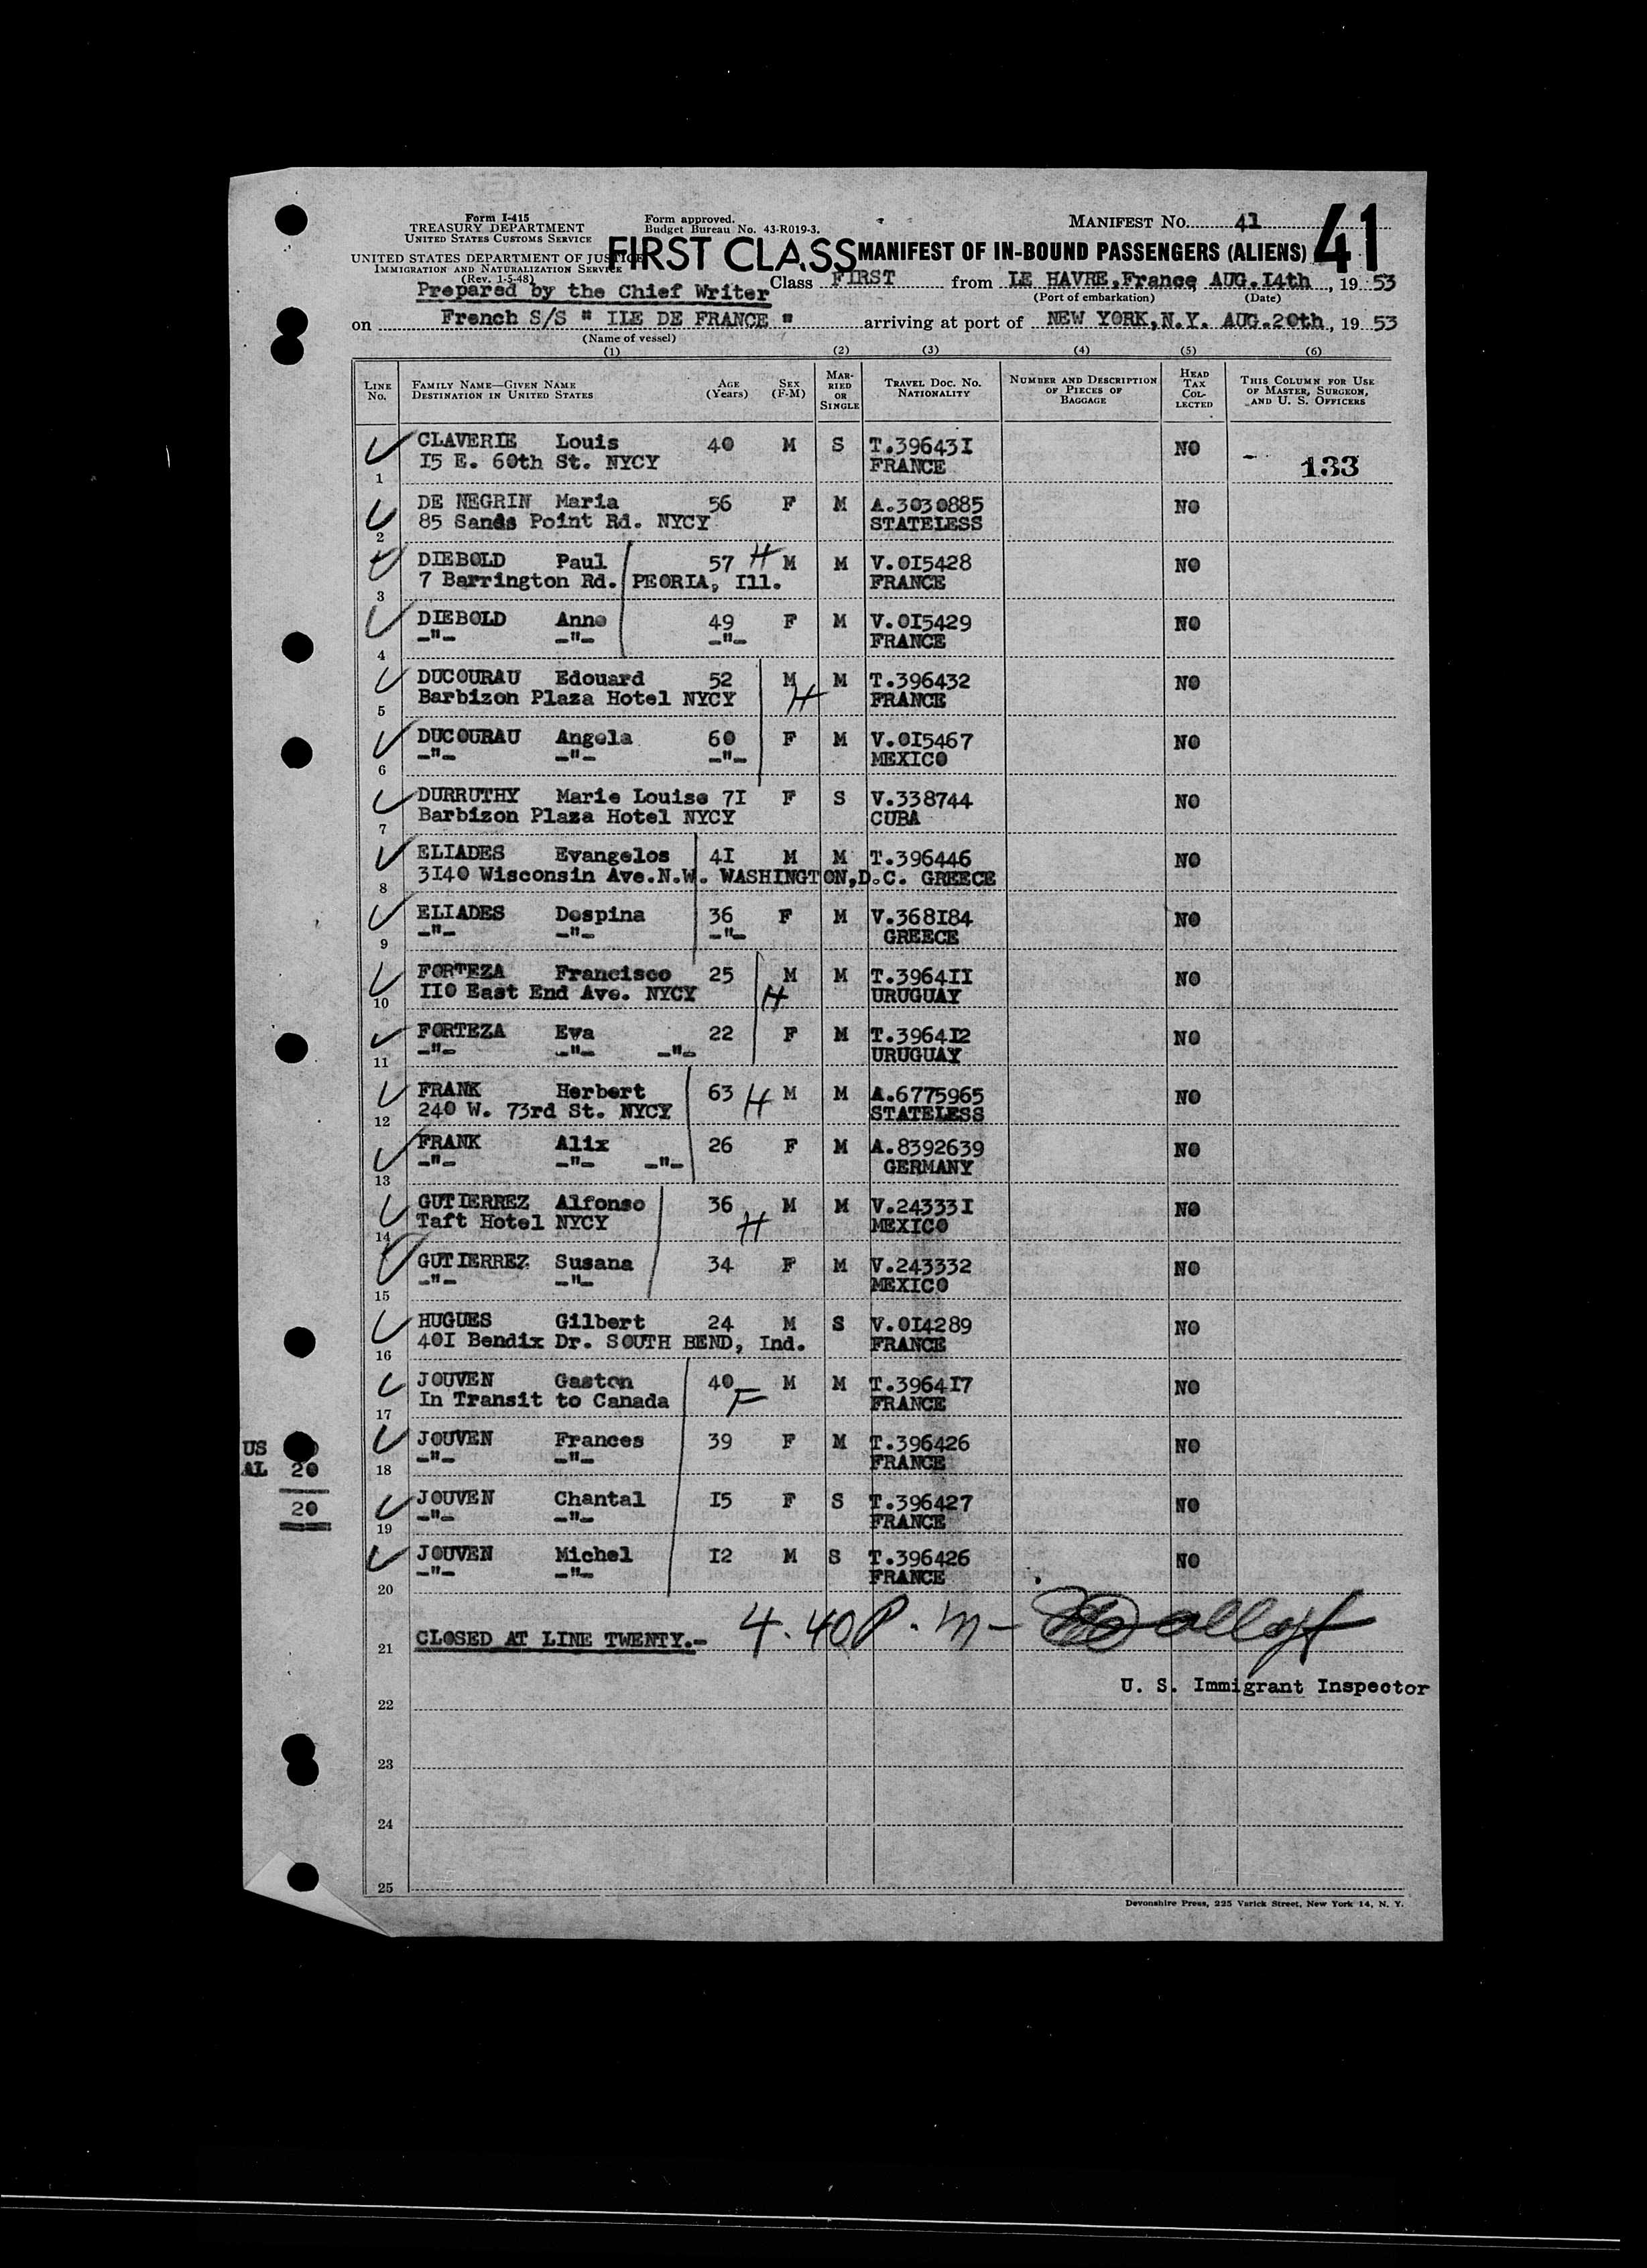 Form I-415
TREASURY DEPARTMENT
UNITED STATES CUSTOMS SERVICE
UNITED STATES DEPARTMENT OF JUSTICE
IMMIGRATION AND NATURALIZATION SERVICE
(Rev. 1-5-48)
Prepared by the Chief Writer
Form approved.
Budget Bureau No. 43-R019-3.
MANIFEST No. 41
41
FIRST CLASS MANIFEST OF IN-BOUND PASSENGERS (ALIENS)
Class FIRST from LE HAVRE, France, AUG. I4th, 19 53
(Port of embarkation) (Date)
on French S/S " ILE DE FRANCE " arriving at port of NEW YORK, N.Y. AUG. 20th, 19 53
(Name of vessel)
(1) (2) (3) (4) (5) (6)
LINE No. FAMILY NAME—GIVEN NAME DESTINATION IN UNITED STATES AGE (Years) SEX (F-M) MARRIED OR SINGLE TRAVEL DOC. NO. NATIONALITY NUMBER AND DESCRIPTION OF PIECES OF BAGGAGE HEAD TAX COLLECTED THIS COLUMN FOR USE OF MASTER, SURGEON, AND U. S. OFFICERS
CLAVERIE Louis 40 M S T.39643I NO
I5 E. 60th St. NYCY FRANCE 133
1
DE NEGRIN Maria 56 F M A.3030885 NO
85 Sands Point Rd. NYCY STATELESS
2
DIEBOLD Paul 57 H M M V.0I5428 NO
7 Barrington Rd. PEORIA, Ill. FRANCE
3
DIEBOLD Anne 49 F M V.0I5429 NO
-"- -"- -"- FRANCE
4
DUCOURAU Edouard 52 M M T.396432 NO
Barbizon Plaza Hotel NYCY H FRANCE
5
DUCOURAU Angela 60 F M V.0I5467 NO
-"- -"- -"- MEXICO
6
DURRUTHY Marie Louise 7I F S V.338744 NO
Barbizon Plaza Hotel NYCY CUBA
7
ELIADES Evangelos 4I M M T.396446 NO
3I40 Wisconsin Ave.N.W. WASHINGTON,D.C. GREECE
8
ELIADES Despina 36 F M V.368I84 NO
-"- -"- -"- GREECE
9
FORTEZA Francisco 25 M M T.3964II NO
II0 East End Ave. NYCY H URUGUAY
10
FORTEZA Eva 22 F M T.3964I2 NO
-"- -"- -"- URUGUAY
11
FRANK Herbert 63 H M M A.6775965 NO
240 W. 73rd St. NYCY STATELESS
12
FRANK Alix 26 F M A.8392639 NO
-"- -"- -"- GERMANY
13
GUTIERREZ Alfonso 36 M M V.24333I NO
Taft Hotel NYCY H MEXICO
14
GUTIERREZ Susana 34 F M V.243332 NO
-"- -"- MEXICO
15
HUGUES Gilbert 24 M S V.0I4289 NO
40I Bendix Dr. SOUTH BEND, Ind. FRANCE
16
JOUVEN Gaston 40 M M T.3964I7 NO
In Transit to Canada F FRANCE
17
JOUVEN Frances 39 F M T.396426 NO
-"- -"- FRANCE
US
AL 20
18
JOUVEN Chantal I5 F S T.396427 NO
-"- -"- FRANCE
20
19
JOUVEN Michel I2 M S T.396426 NO
-"- -"- FRANCE
20
CLOSED AT LINE TWENTY.- 4.40 P.m -
21
U. S. Immigrant Inspector
22
23
24
25
Devonshire Press, 225 Varick Street, New York 14, N. Y.